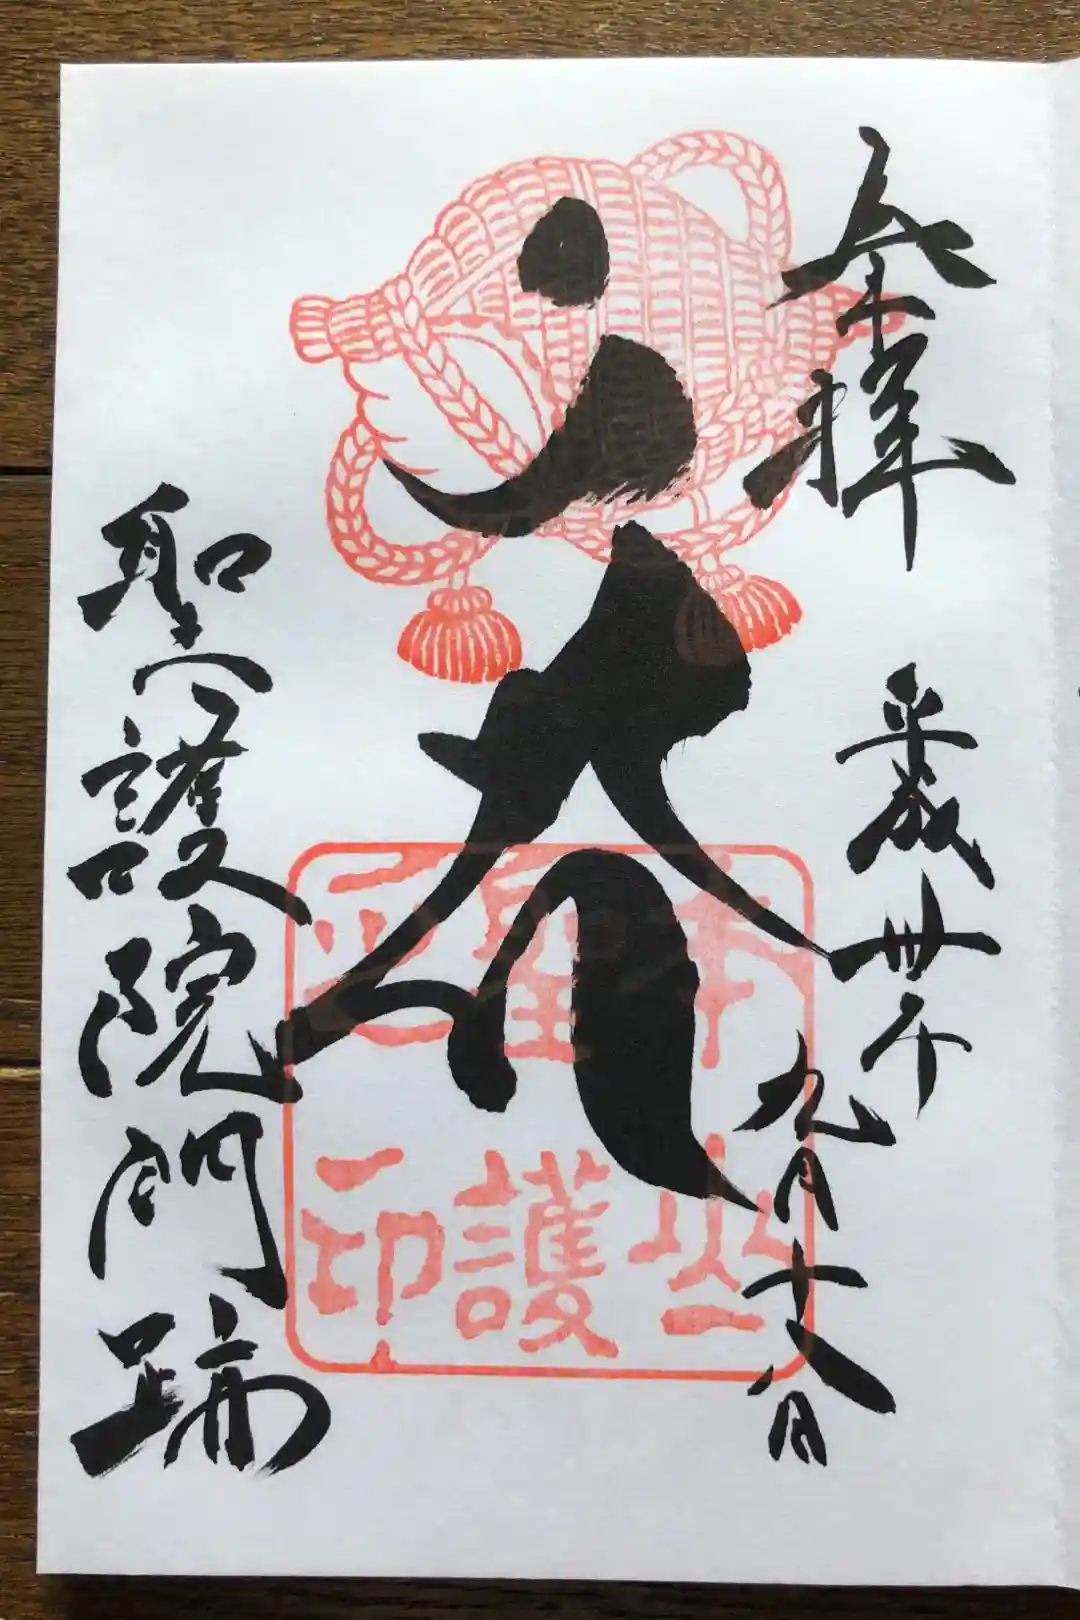 奉拝
平成卅年
九月十八日
聖護院門跡
本山
聖護
印